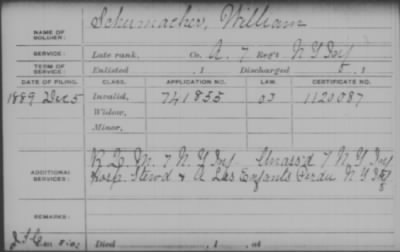 NAME OF SOLDIER: Schumacher, William
SERVICE: Late rank, Co. A. 7 Reg't N Y Inf
TERM OF SERVICE: Enlisted , 1 Discharged , 1
DATE OF FILING. CLASS. APPLICATION NO. LAW. CERTIFICATE NO.
1889 Dec 5 Invalid, 741855 1120087
Widow,
Minor,
ADDITIONAL SERVICES: M. 7 N. Y Inf Unass'd 7 N. Y Inf
Hosp. Stew'd & A Les Enfants Perdu N Y
REMARKS:
Died , 1 , at